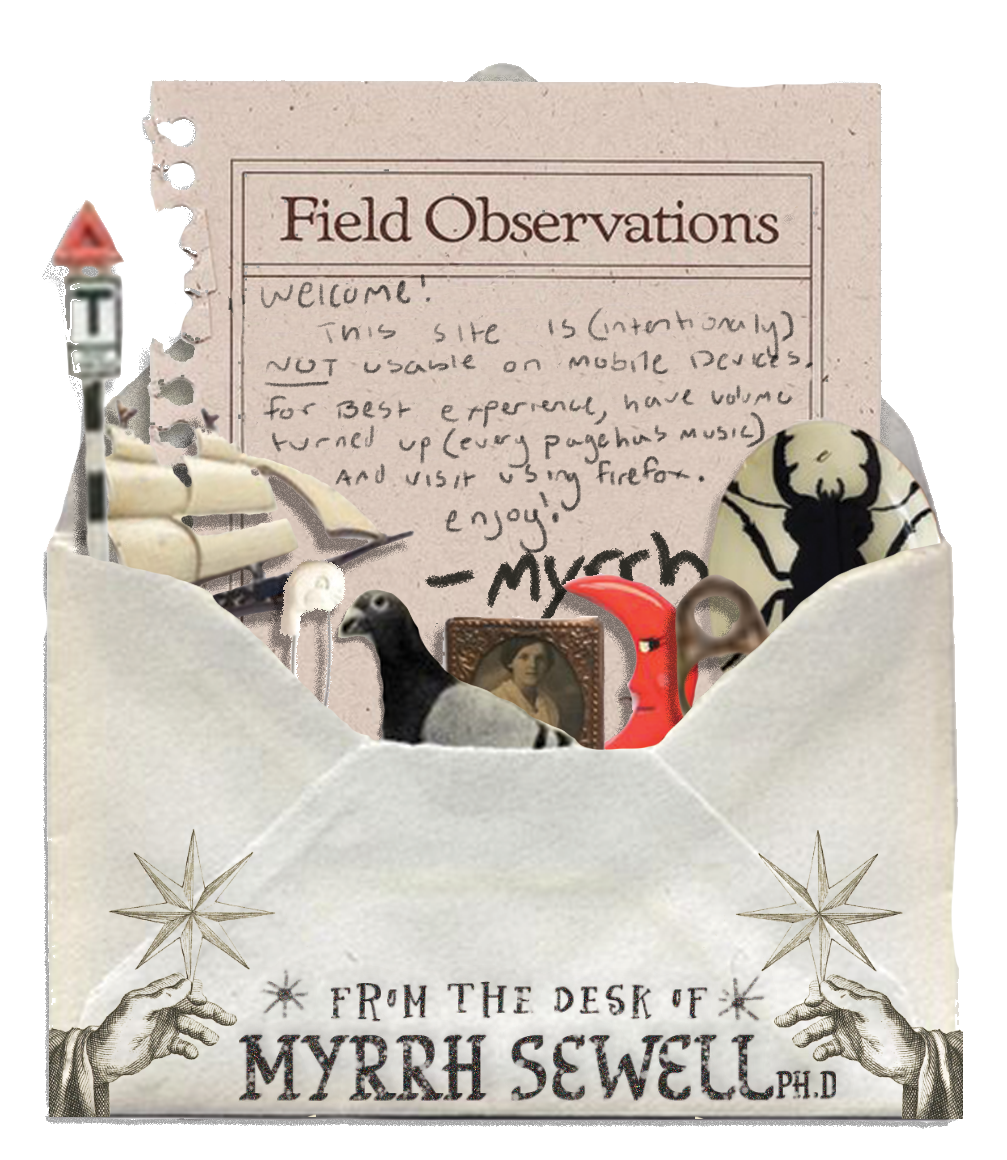 Field Observations
Welcome!
This site is (intentionally)
NOT usable on mobile Devices.
for Best experience, have volume
turned up (every page has music)
And visit using firefox.
enjoy!
- Myrrh
T
FROM THE DESK OF
MYRRH SEWELL PH.D